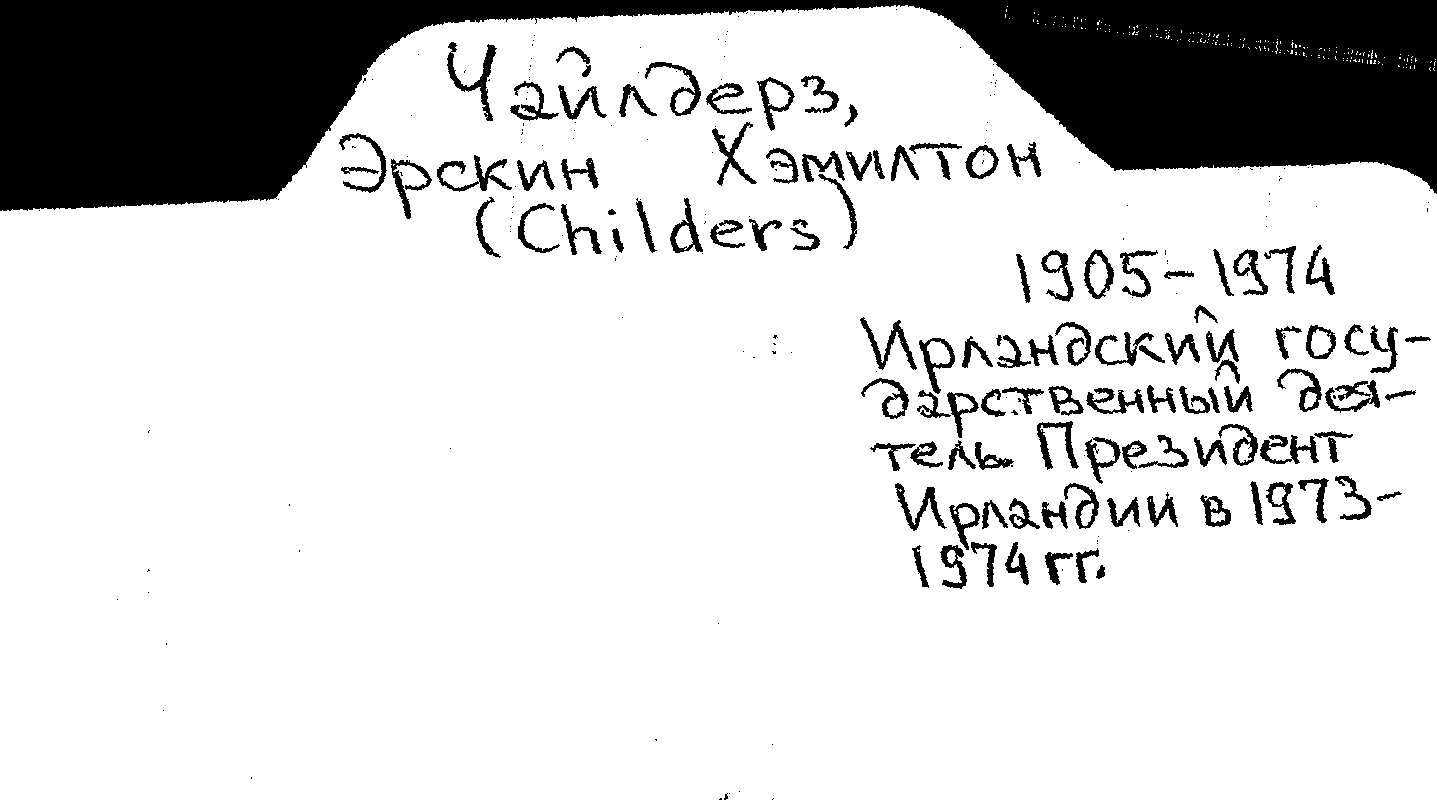 Чайлдерз,
Эрскин Хэмилтон
(Childers)
1905-1974
Ирландский госу-
дарственный дея-
тель. Президент
Ирландии в 1973-
1974 гг.